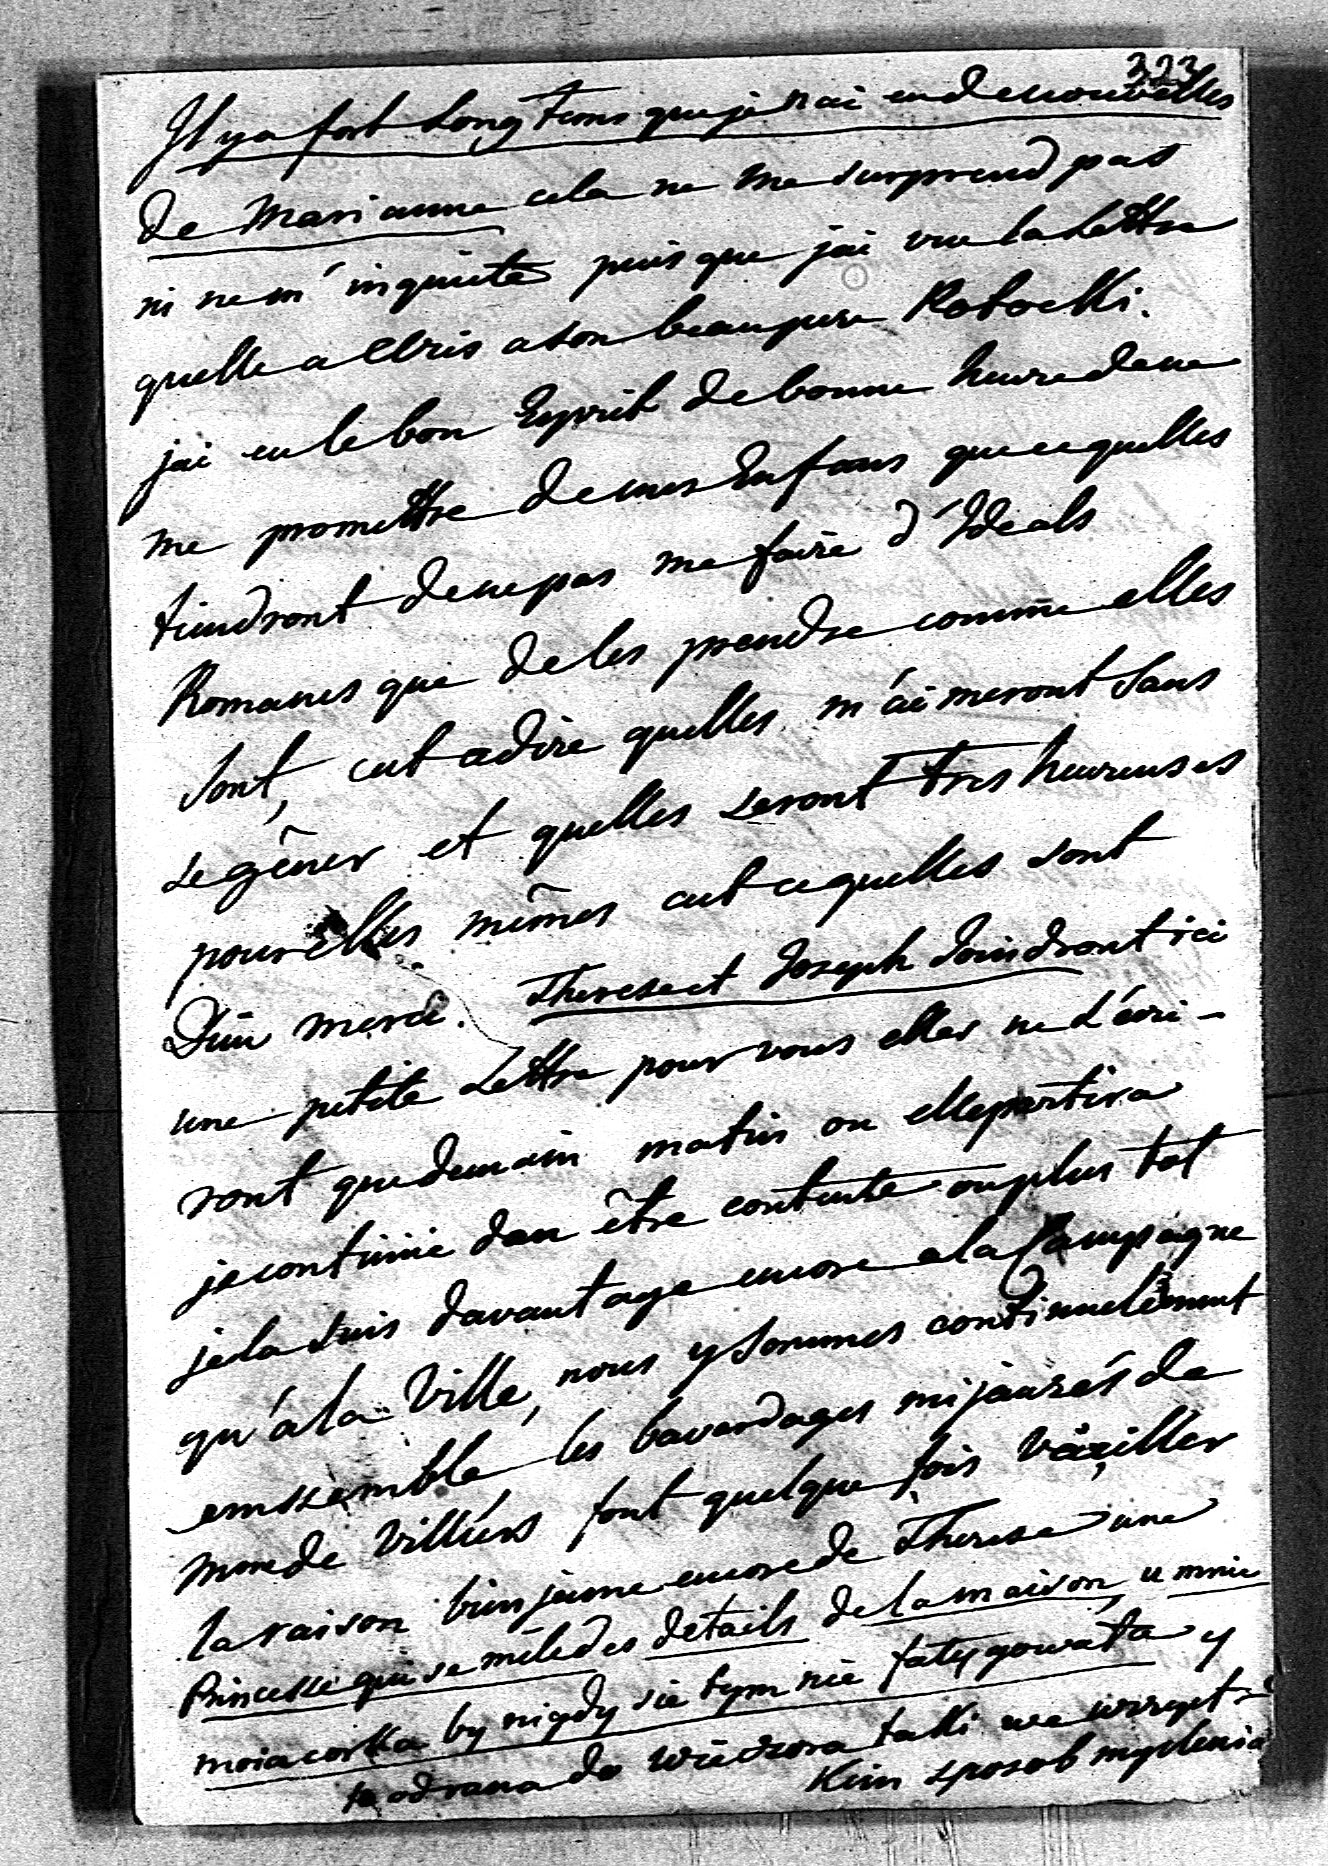 323
Il y a fort Long Tems que je n'ai eu de nouvelles
de Marianne cela ne me surprend pas
ni ne m'inquiete puis que jai vue la Lettre
quelle a Ecris a son beaupere Potocki.
jai eu le bon Esprit de bonne heure de ne
me promettre de mes Enfans que ce quelles
tiendront de ne pas me faire d'Ideals
Romanes que de les prendre comme elles
sont, cest adire quelles m'aimeront sans
se gêner et quelles seront tres heureuses
pour Elles mêmes cest ce quelles sont
Dieu merci. Therese et Joseph Joindront ici
une petite Lettre pour vous elles ne l'écri-
ront que demain matin ou elle partira
je continue d'en être contente ou plus tot
je la suis davantage encore a la Campagne
qu'a la Ville, nous y sommes continuelement
emssemble les bavardages mijaurés de
Mme de Villiérs font quelque fois vaciller
la raison bien jeune encore de Therese une
Princesse qui se mêle des details de la maison, u mnie
moia corka by nigdy sie tym nie fatygowała y
to od rana do wieczora takki we wszyst-
kim sposob myslenia